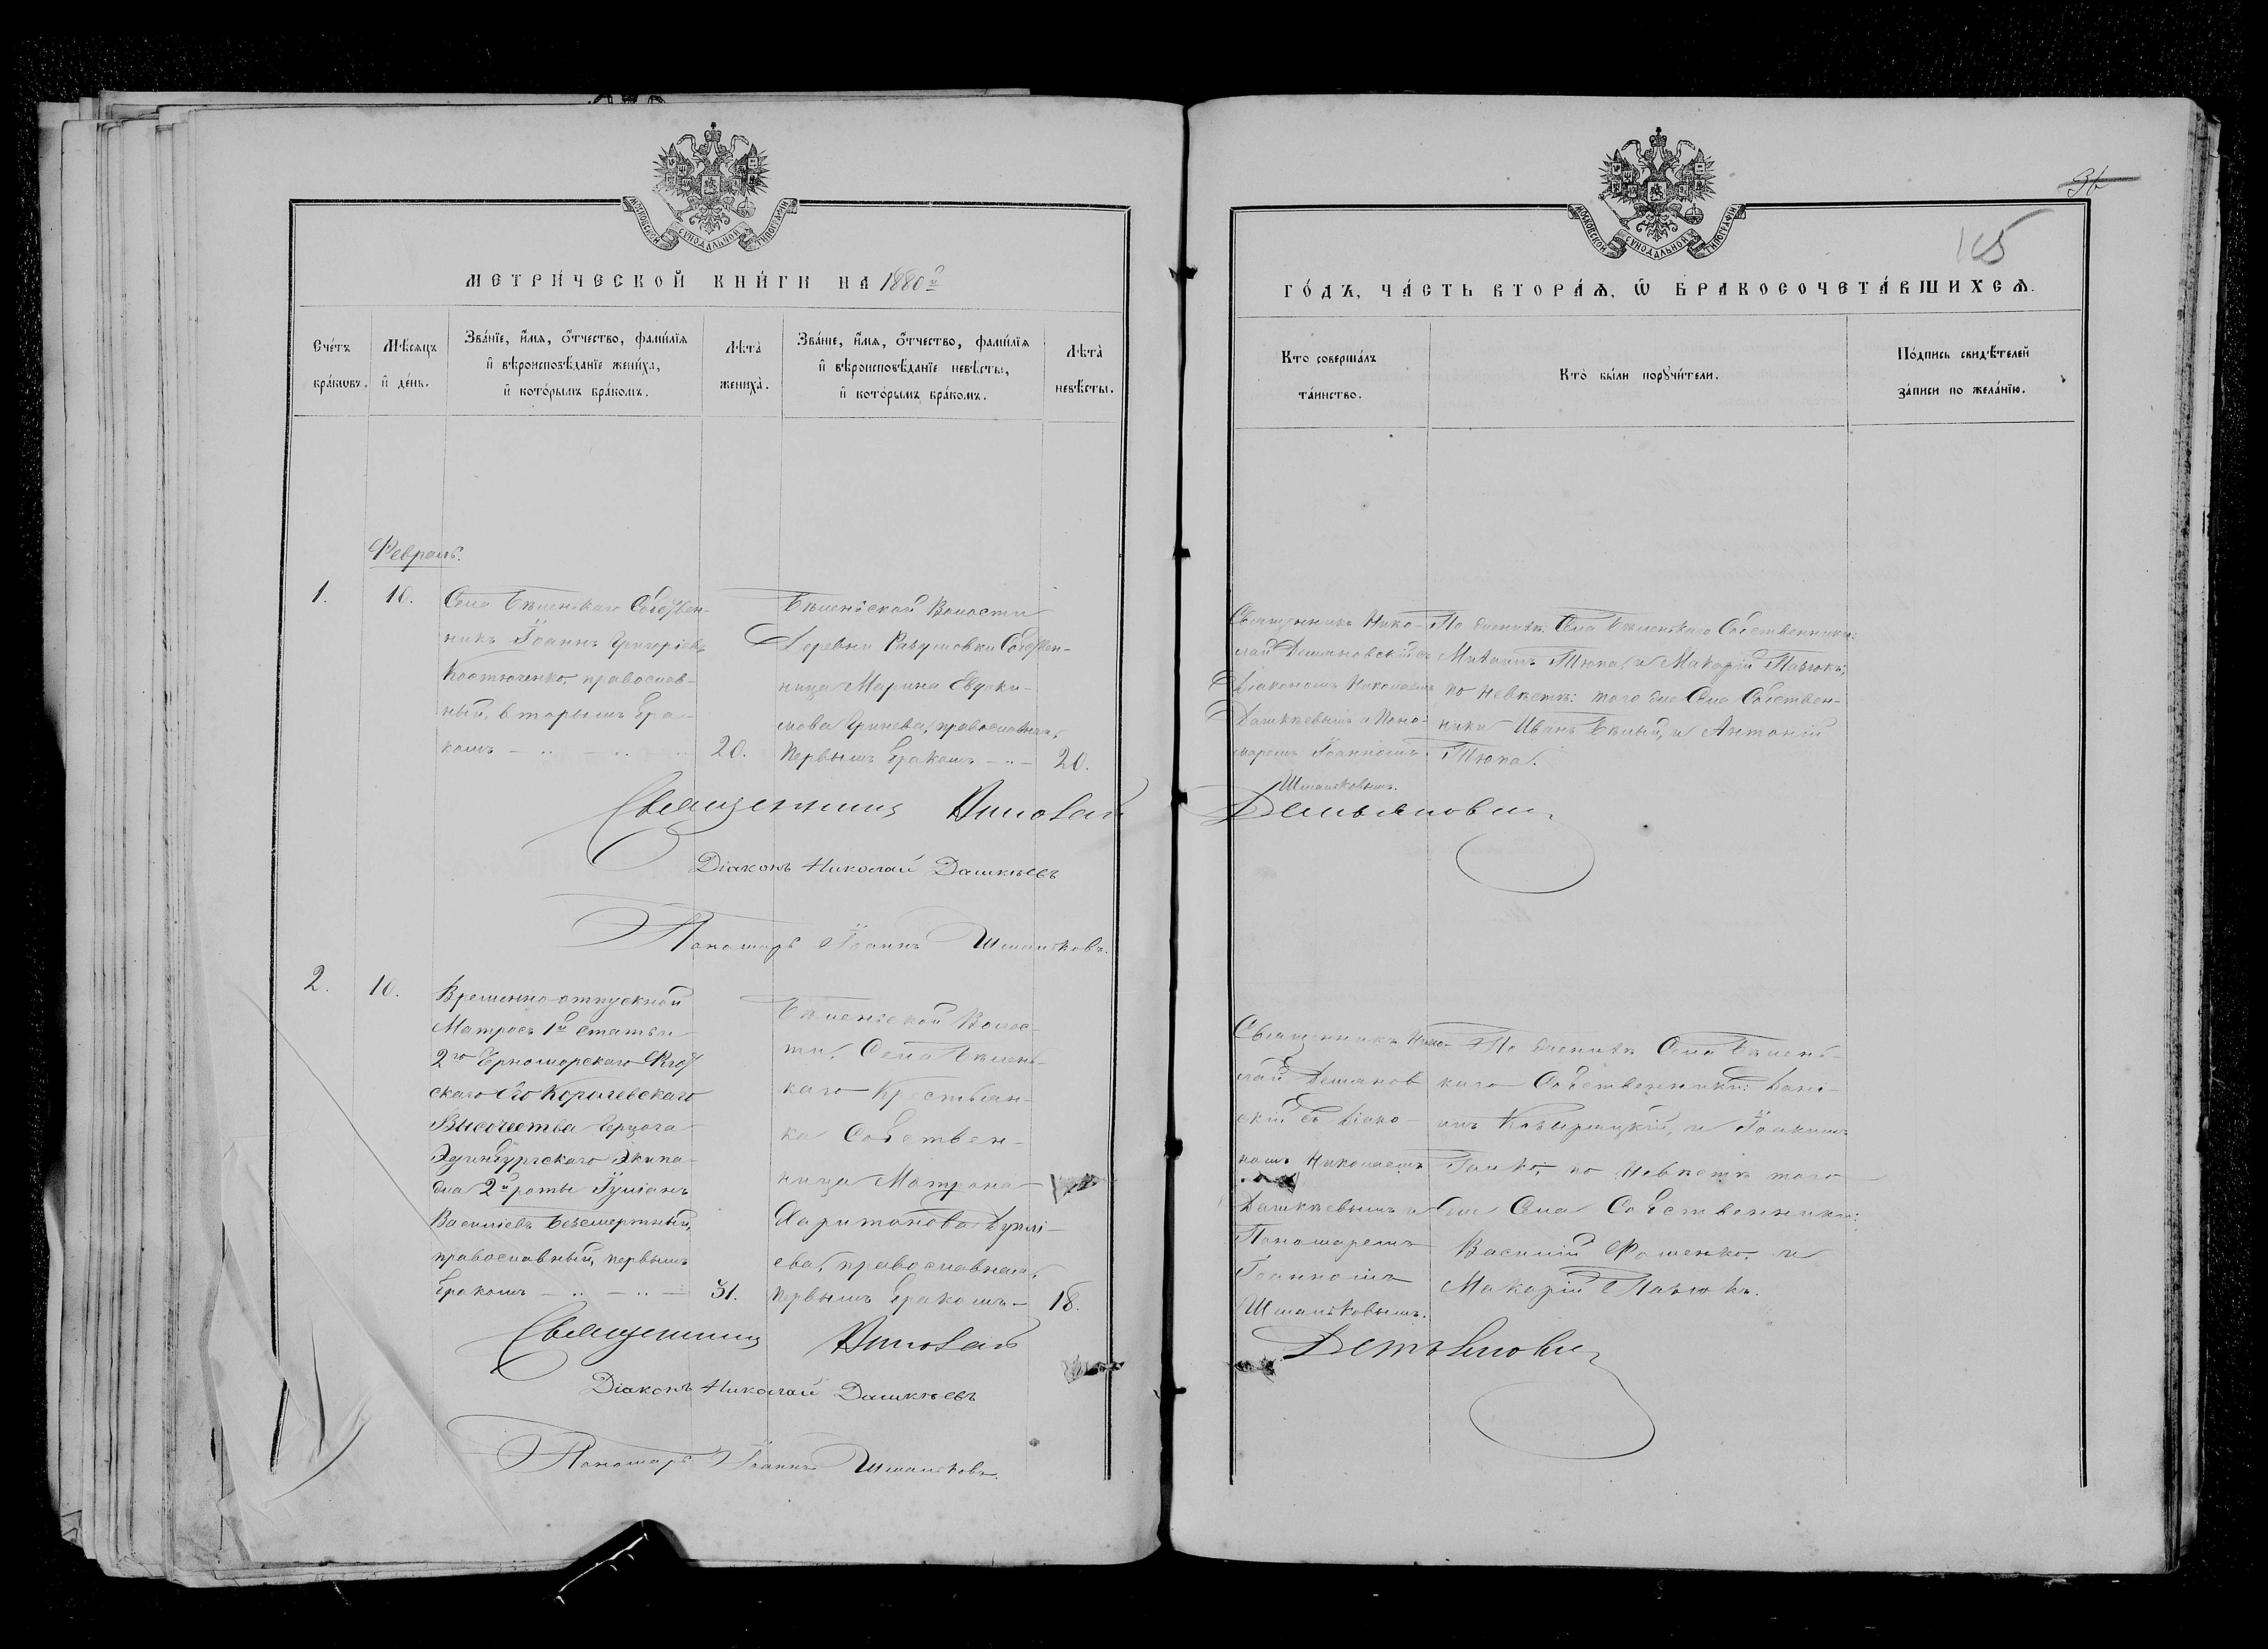 МОСКОВСКОЙ СѴНОДАЛЬНОЙ ТИПОГРАФІИ
МЕТРИ́ЧЕСКОЙ КНИ́ГИ НА 1880й
Сче́тъ бра́кωвъ.
Мѣ́сяцъ и҆ де́нь.
Зва́нїе, и҆́мѧ, ѻ҆́тчество, фами́лїѧ
и҆ вѣроисповѣ́данїе жениха̀,
и҆ кото́рымъ бра́комъ.
Лѣта̀ жениха̀.
Зва́нїе, и҆́мѧ, ѻ҆́тчество, фами́лїѧ
и҆ вѣроисповѣ́данїе невѣ́сты,
и҆ кото́рымъ бра́комъ.
Лѣта̀ невѣ́сты.
Февраль.
1.
10.
Села Бѣленькаго Собствен-
никъ Іоаннъ Григоріевъ
Костюченко, православ-
ный, вторымъ бра-
комъ
20.
Бѣленьской Волости
Деревни Собствен-
ница Марина Евдоки-
мова Гринева, православная,
первымъ бракомъ
20.
Священникъ Николай
Діаконъ Николай Дашкѣевъ
Пономарь Іоаннъ Шмальковъ.
2.
10.
Временно-отпускной
Матросъ 1й статьи
2го Черноморскаго Флот
скаго Его Королевскаго
Высочества Герцога
Эдинбургскаго Экипа-
жа 2й роты Іуліанъ
Василіевъ Безсмертный,
православный, первымъ
бракомъ
31.
Бѣленьской Волос-
ти, Села Бѣлень-
каго Крестьян-
ка Собствен-
ница Матрона
Харитонова
ева, православная,
первымъ бракомъ
18.
Священникъ Николай
Діаконъ Николай Дашкѣевъ
Пономарь Іоаннъ Шмальковъ.
36
105
МОСКОВСКОЙ СѴНОДАЛЬНОЙ ТИПОГРАФІИ
ГО́ДЪ, ЧА́СТЬ ВТОРА́Ѧ, Ѽ БРАКОСОЧЕТА́ВШИХСѦ.
Кто соверша́лъ
та́инство.
Кто̀ бы́ли порꙋчи́тели.
По́дпись свидѣ́телей
за́писи по жела́нїю.
Священникъ Нико-
лай Демьяновскій съ
Діакономъ Николаемъ
Дашкѣевымъ и Поно-
маремъ Іоанномъ
Шмальковымъ.
По женихѣ: Села Бѣленькаго Собственники:
Михаилъ Тюпа, и Макарій Павлюкъ;
по невѣстѣ: того же Села Собствен-
ники Иванъ Бѣлый, и Антоній
Тюпа.
Демьяновскій
Священникъ Нико-
лай Демьянов
скій съ Діако-
номъ Николаемъ
Дашкѣевымъ и
Пономаремъ
Іоанномъ
Шмальковымъ.
По женихѣ Села Бѣлень-
каго Собственники: Дані-
илъ и Іоакимъ
по невѣстѣ того
же Села Собственники:
Василій Фоменко, и
Макарій Павлюкъ.
Демьяновскій